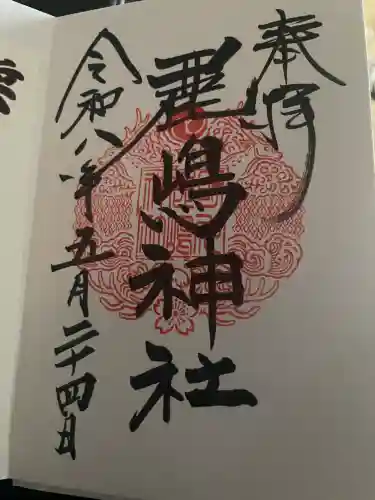 奉拝
鹿嶋神社
令和八年五月二十四日